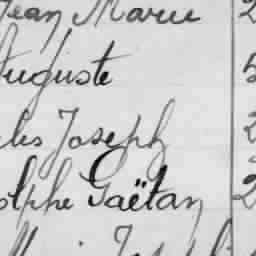 Jean Marie 2
Auguste 5
les Joseph 2
olphe Gaëtan 2